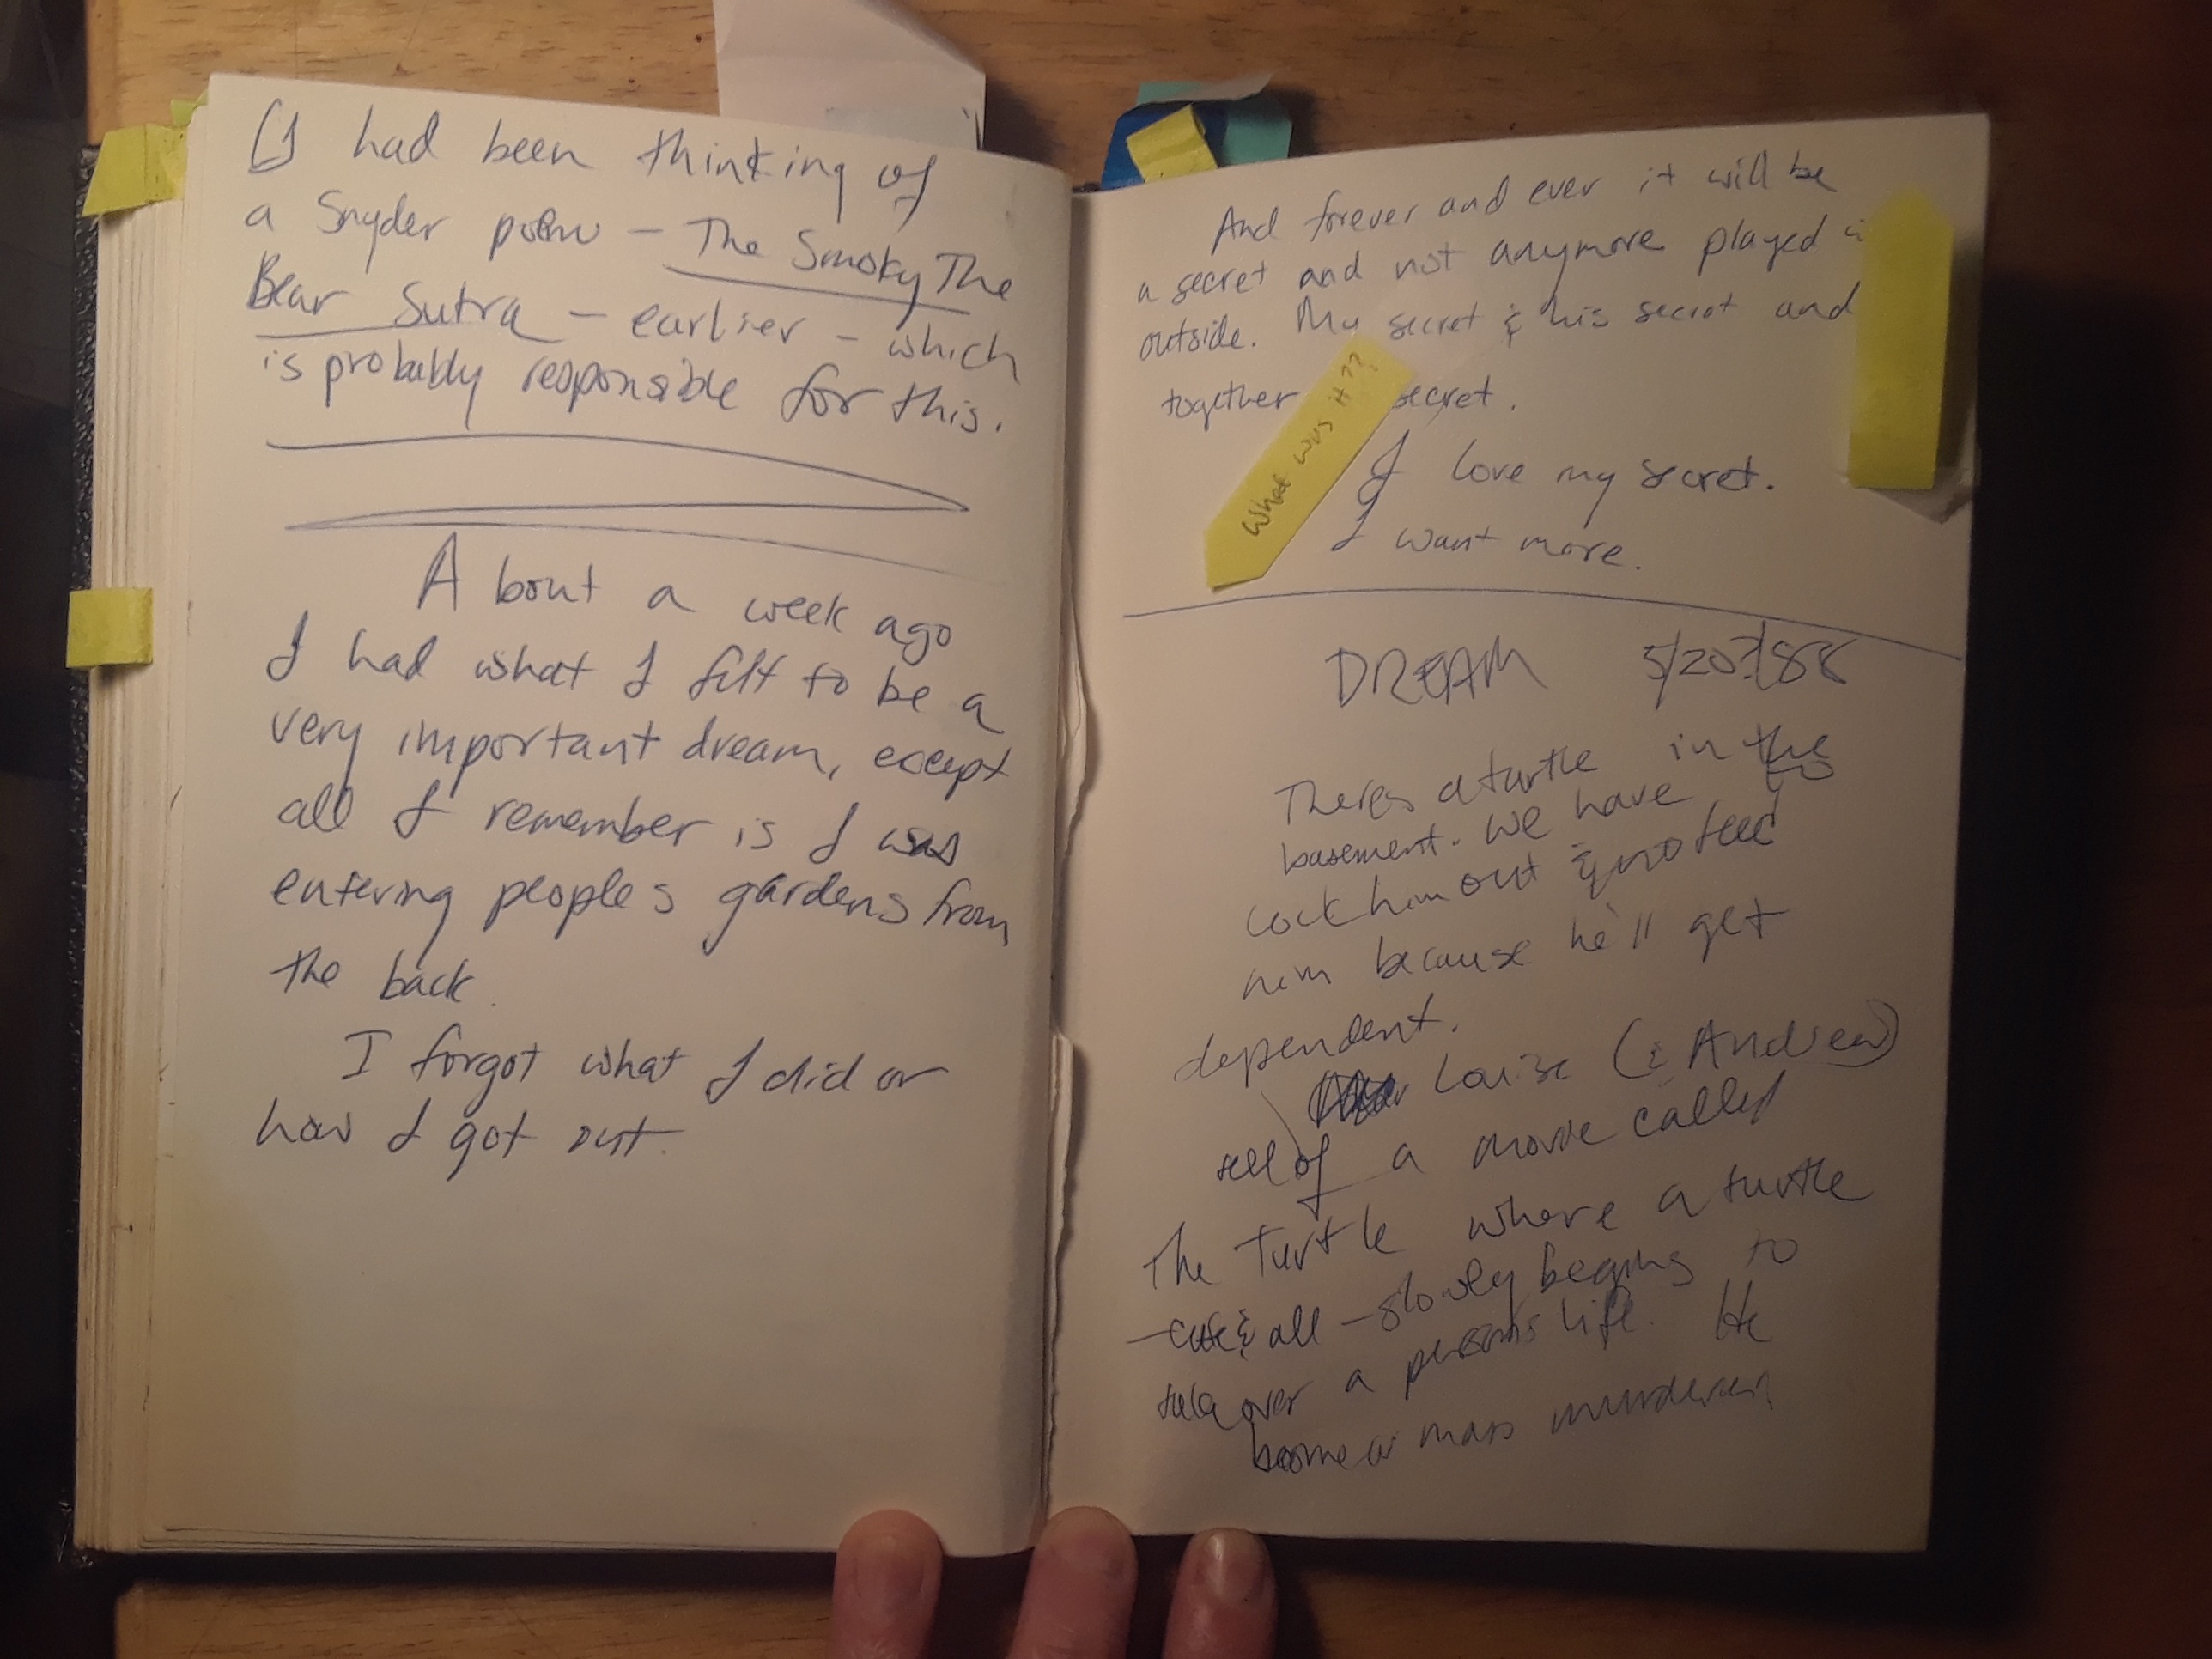 (I had been thinking of
a Snyder poem – The Smoky The
Bear Sutra – earlier – which
is probably responsible for this.
About a week ago
I had what I felt to be a
very important dream, except
all I remember is I was
entering people's gardens from
the back.
I forgot what I did or
how I got out.
And forever and ever it will be
a secret and not anymore played
outside. My secret & his secret and
together secret.
What was it??
I love my secret.
I want more.
DREAM 5/20/88
Theres a turtle in the
basement. We have to
lock him out & not feed
him because he'll get
dependent.
Louise (& Andrew)
tell of a movie called
The Turtle where a turtle
– cute & all – slowly begins to
take over a persons life. He
become a mass murderer